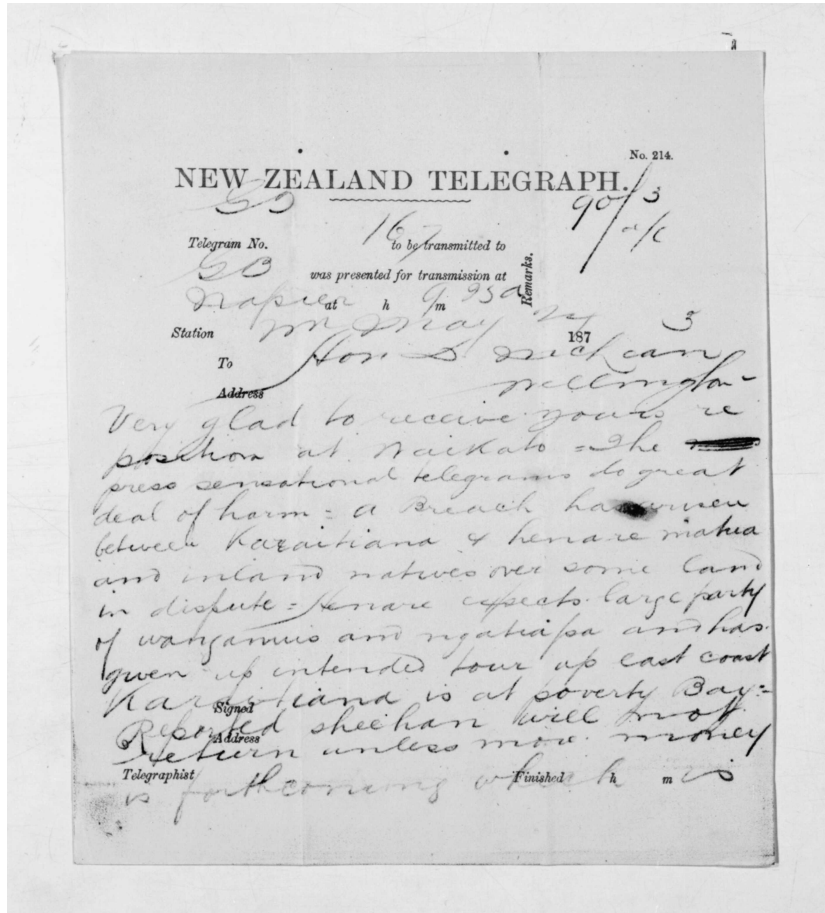 No. 214.
NEW ZEALAND TELEGRAPH.
90/3
Telegram No. 167 to be transmitted to
was presented for transmission at
Remarks.
Napier at h m
Station May 187 3
To Hon D McLean
Address Wellington
Very glad to receive yours re
position at Waikato = The
press sensational telegrams do great
deal of harm = a Breach has arisen
between Karaitiana & henare matua
and inland natives over some land
in dispute = Henare expects large party
of wanganuis and ngatiapa and has
given up intended tour up east coast
Karaitiana is at poverty Bay =
Signed
Reported sheehan will not
Address
return unless more money
Telegraphist Finished h m
is forthcoming which is